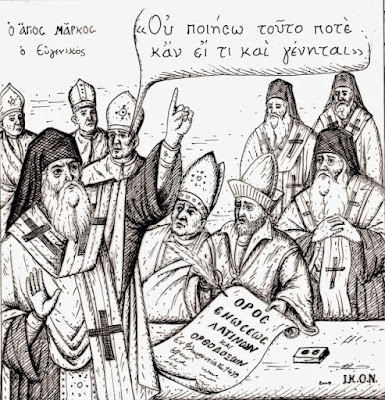 Ὁ ἍΓΙΟΣ ΜᾶΡΚΟΣ
ὁ Εὐγενικός
«Οὐ ποιήσω τοῦτο ποτὲ
κἄν εἴ τι καὶ γένηται»
ΟΡΟΣ
ΕΝΩΣΕΩΣ
ΛΑΤΙΝΩΝ
ΚΑΙ
ΟΡΘΟΔΟΞΩΝ
Ι.Κ.Ο.Ν.